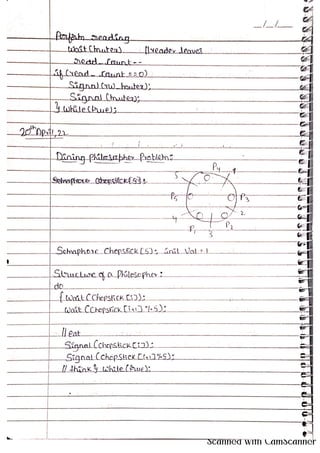 __/__/__
Perform reading
wait (mutex) // reader leaves
read_count--
if (read_count ==0)
Signal (rw_mutex);
Signal (mutex);
} while (true);
20th April, 22
Dining Philosopher Problem:
Semaphore Chopstick[5];
P4
5
P5
P3
4
2
P1
P2
3
Semaphore Chopstick [5]; init val = 1
Structure of a philosopher:
do
{ wait (Chopstick [i]);
wait (Chopstick [i+1] %5);
// eat
Signal (Chopstick [i]);
Signal (Chopstick [i+1]%5);
// think } while (true);
Scanned with CamScanner